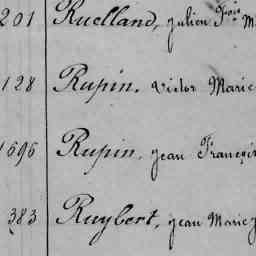 201 Ruelland, Julien Fois M
128 Rupin, Victor Marie
1696 Rupin, Jean François
383 Ruybert, Jean Marie